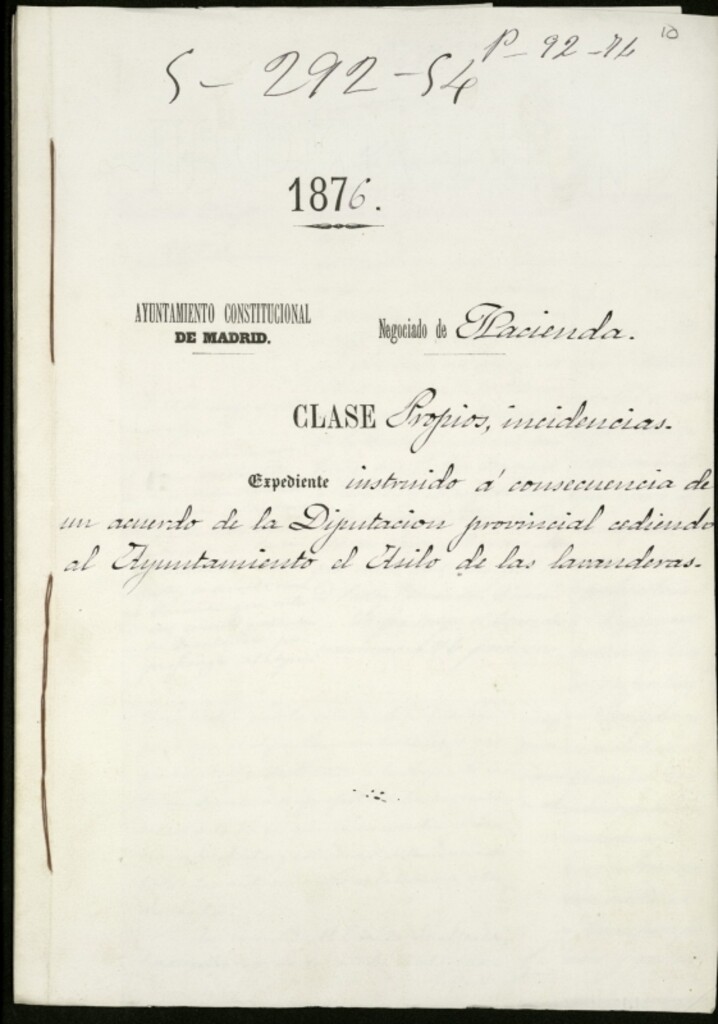 10
5-292-54 P-92-74
1876.
AYUNTAMIENTO CONSTITUCIONAL
DE MADRID.
Negociado de Hacienda.
CLASE Propios, incidencias.
Expediente instruido á consecuencia de
un acuerdo de la Diputacion provincial cediendo
al Ayuntamiento el Asilo de las lavanderas.